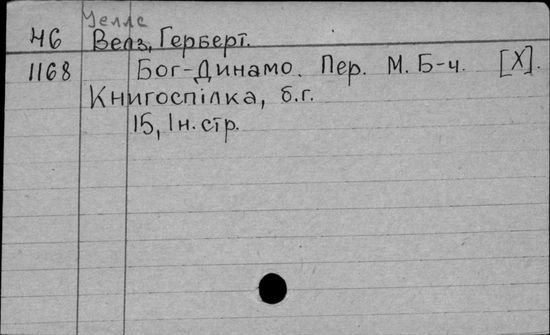 Уеллс
46 Велз, Герберт.
1168 Бог-Динамо. Пер. М. Б-ч. [Х].
Книгоспілка, б.г.
15, 1н.стр.